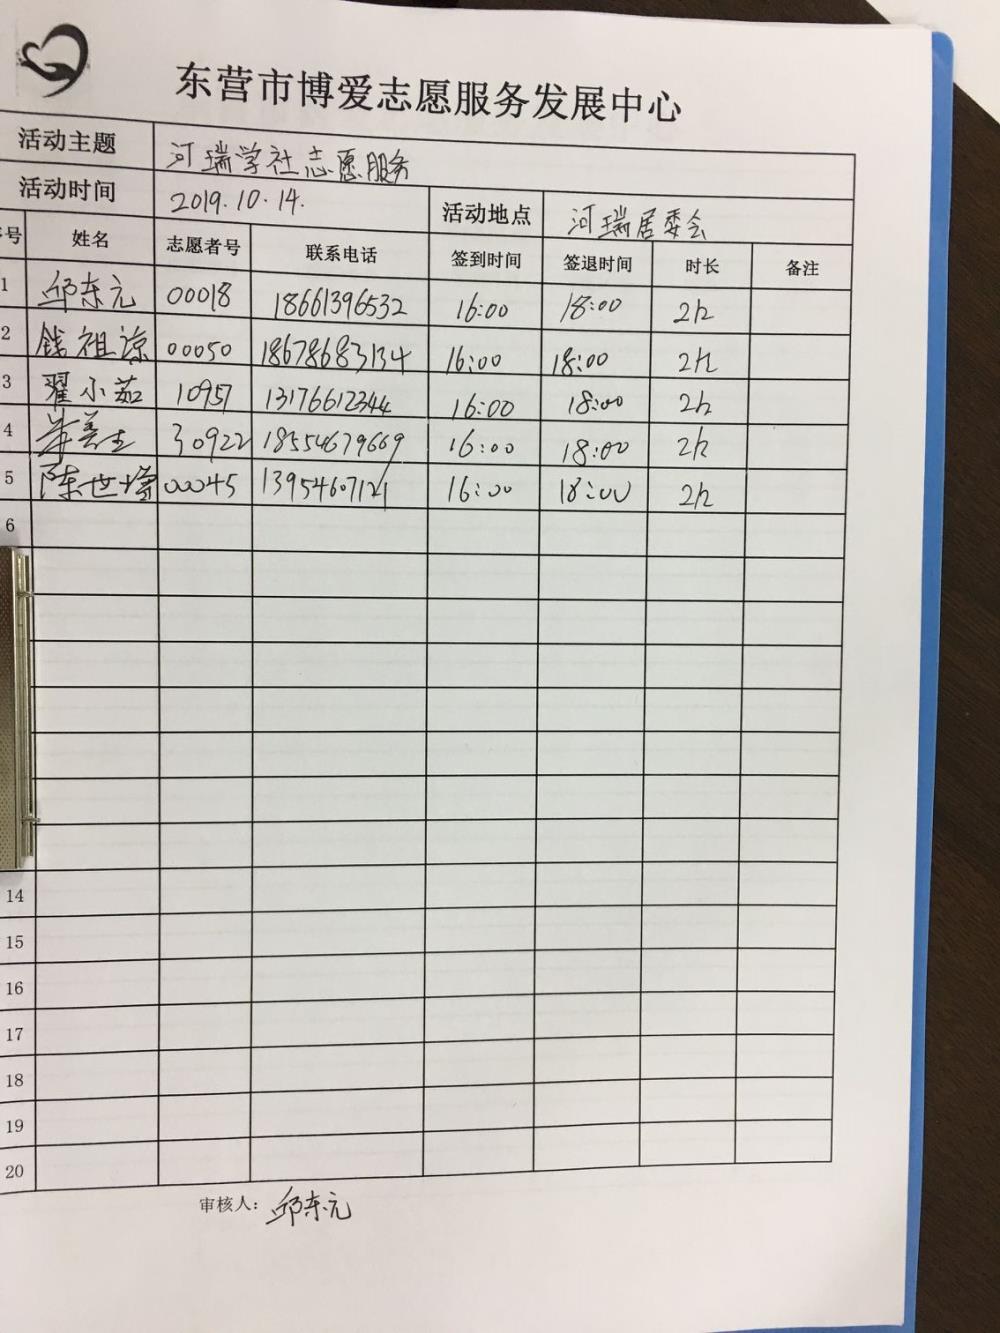 东营市博爱志愿服务发展中心
活动主题 河瑞学社志愿服务
活动时间 2019.10.14. 活动地点 河瑞居委会
号 姓名 志愿者号 联系电话 签到时间 签退时间 时长 备注
1 邱东元 00018 18661396532 16:00 18:00 2h
2 钱祖谅 00050 18678683134 16:00 18:00 2h
3 翟小茹 10957 13176612344 16:00 18:00 2h
4 30922 18554679669 16:00 18:00 2h
5 陈世增 00045 13954607121 16:00 18:00 2h
6
14
15
16
17
18
19
20
审核人: 邱东元